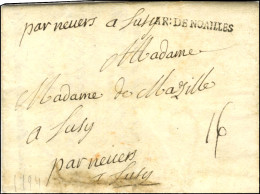 par nevers a Lusy AR: DE NOAILLES
Madame
Madame de Mazille
a Lusy
16
par nevers
a Lusy